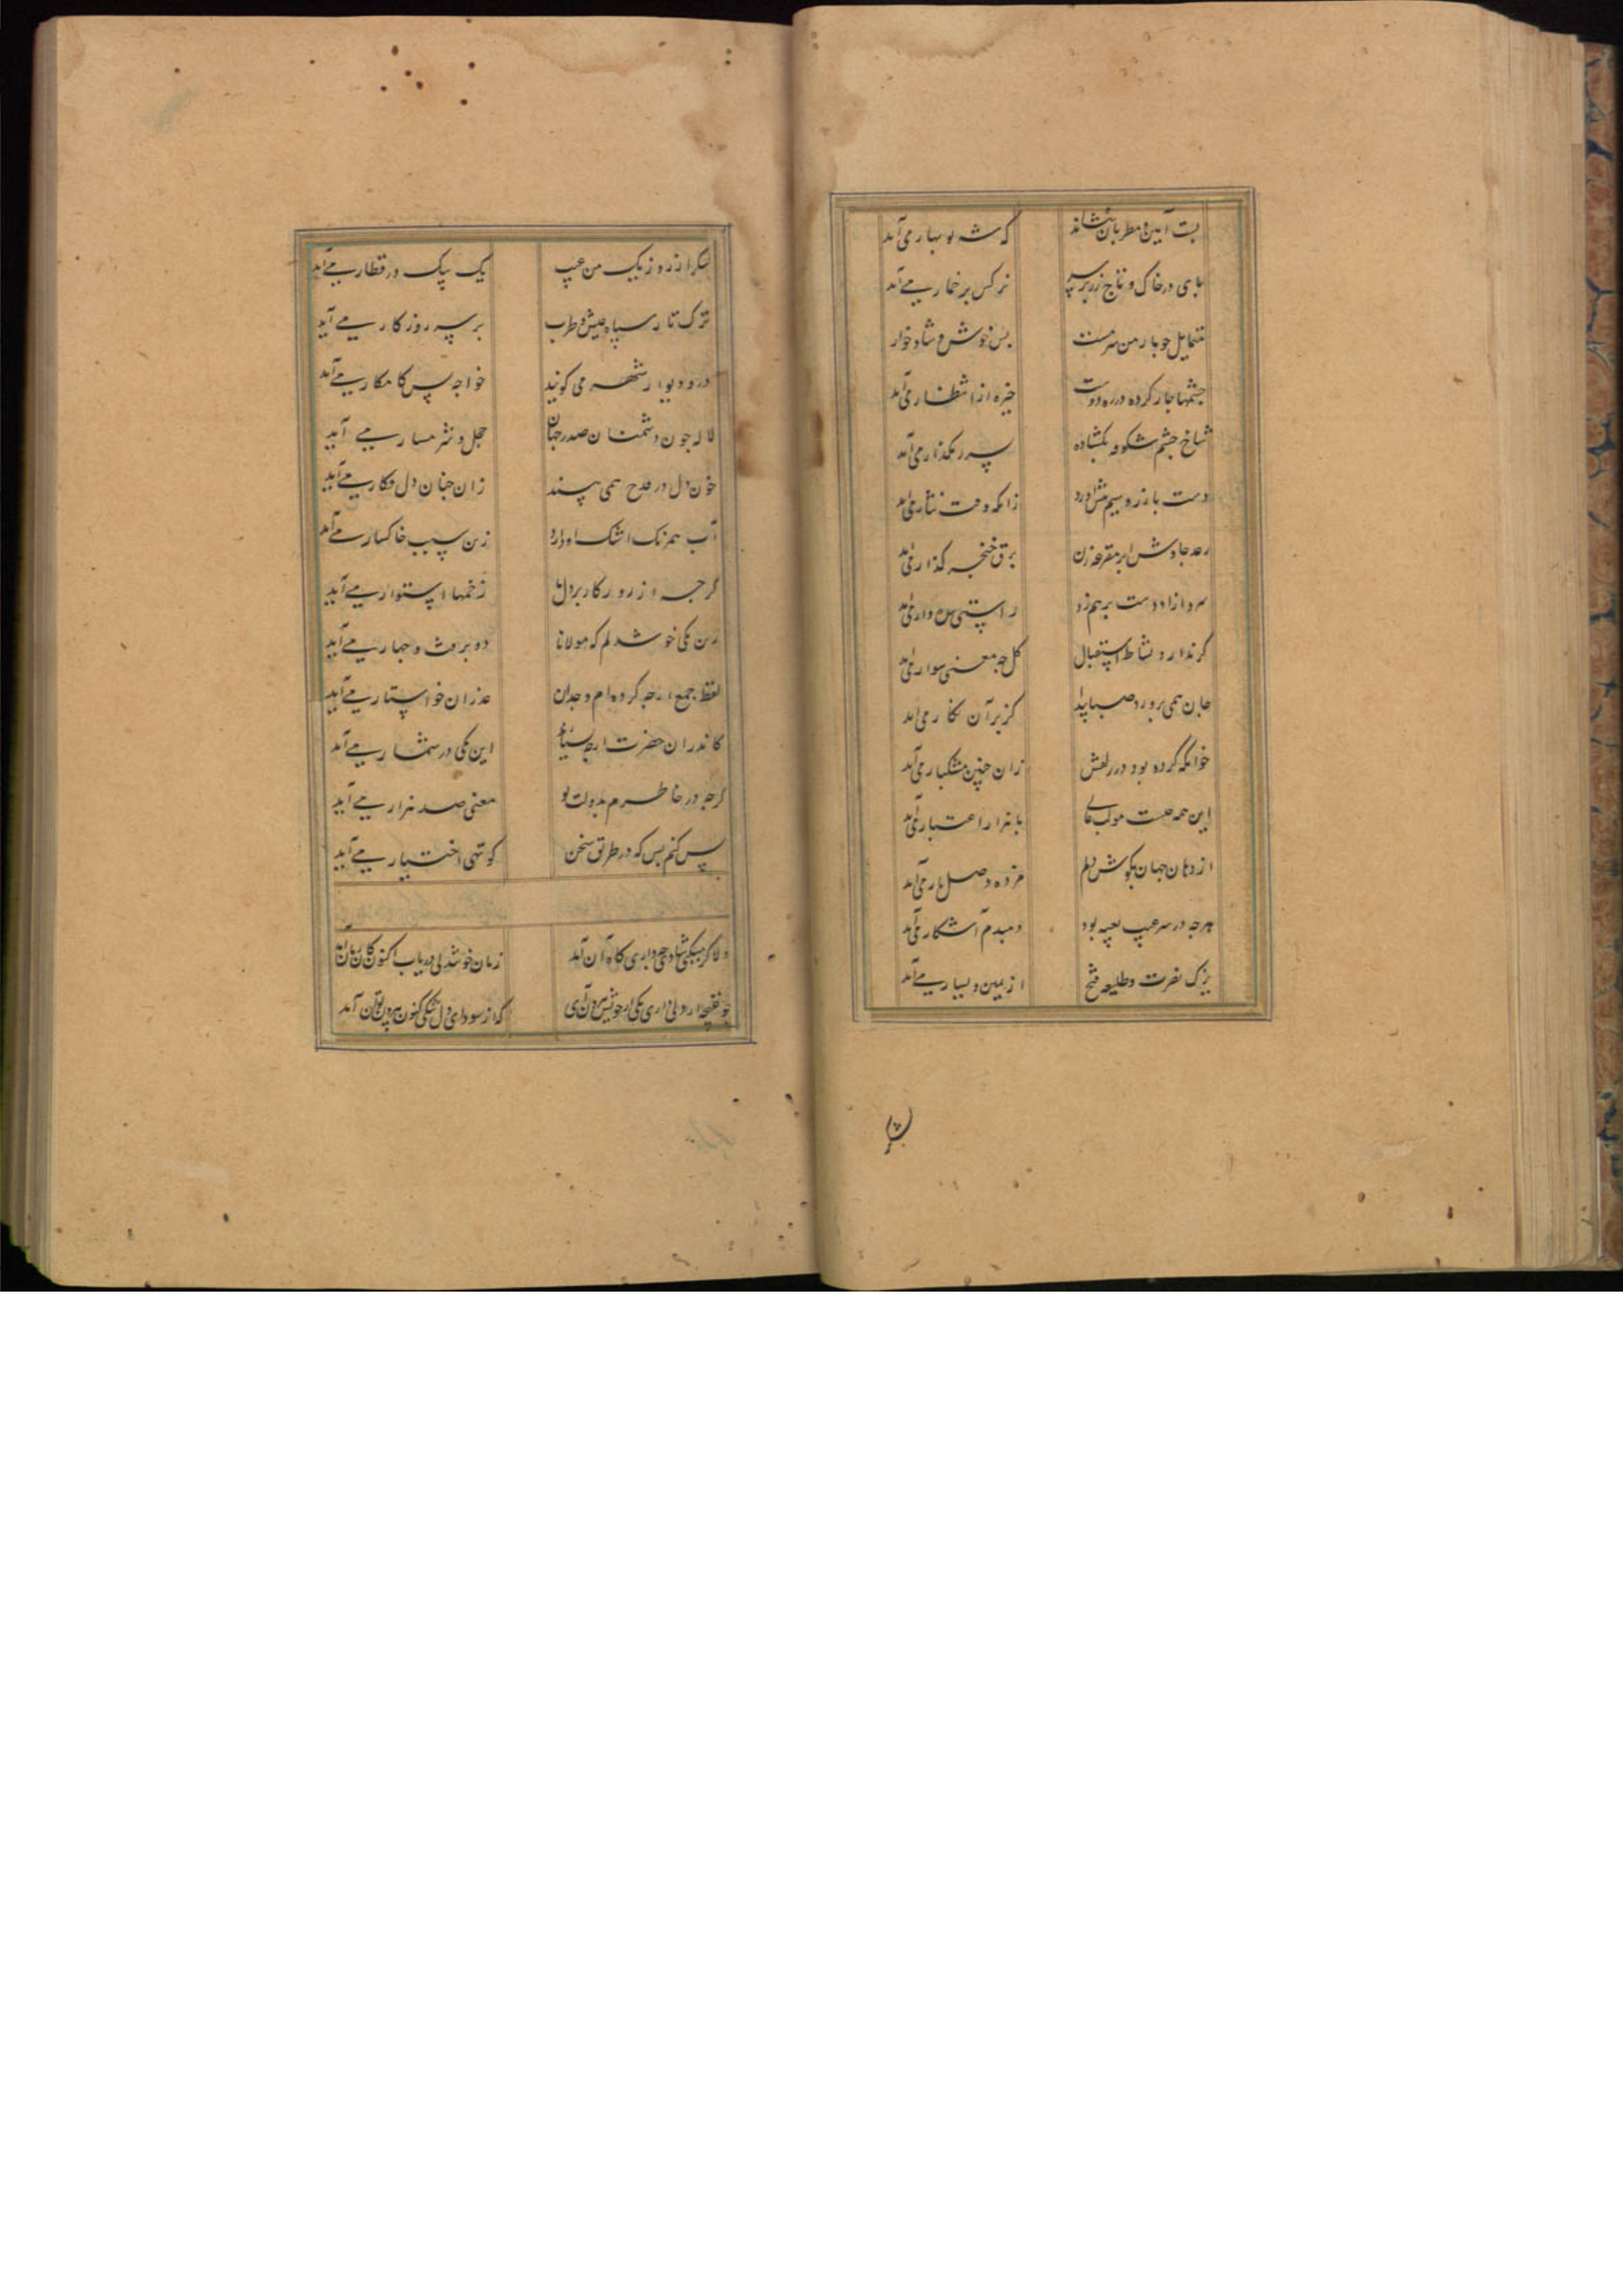 بست آیین و مطربان بنشاند
که شه نوبهار می آمد
پای در خاک و تاج زر بر سر
نرکس پر خمار می آمد
متمایل چو یار من سرمست
بس خوش و شاد خوار
چشمها چار کرده در ره دوست
خیره از انتظار می آمد
شاخ چشم شکوفه بکشاده
بر سر رهکذار می آمد
دست با زر و سیم
زانکه وقت نثار می آمد
رعد چاوش ابر مقرعه زن
برق خنجر کذار می آمد
سرو ازاد دست بر هم زد
راستی می آمد
کر ندارد نشاط استقبال
کل چه معنی سوار می آمد
جان همی پرورد صبا
کز بر آن نکار می آمد
خوابکه کرده بود در زلفش
زان چنین مشکبار می آمد
این همه هست موکب
با نرا اعتبار می آمد
از دهان جهان بکوش دلم
مژده وصل یار می آمد
هرچه در سر غیب تعبیه بود
دمبدم آشکار می آمد
یزک نصرت و طلیعه فتح
از یمین و یسار می آمد
از ره نزدیک من غیب
یک بیک در قطار می آید
ترک تاز سپاه عیش و طرب
بر سر روزکار می آید
در و دیوار شهر می کویند
خواجه بس کامکار می آمد
لاله چون دشمنان صدر جهان
خجل و شرمسار می آید
خون دل در قدح همی بیند
زان چنان دل فکار می آید
آب همرنک اشک او دارد
زین سبب خاکسار می آمد
کرچه از روزکار بر دل
زخمها استوار می آید
زین یکی خوشدلم که مولانا
دو برفت و چهار می آید
لفظ جمع ارچه کرده ام وجدان
عذر ان خواستار می آید
کاندران حضرت ارچه بسیارند
این یکی در شمار می آمد
کرچه در خاطرم بدولت تو
معنی صد هزار می آید
بس کنم بس که در طریق سخن
کوتهی اختیار می آید
دلا کر میکنی شادی چه داری کاه آن آمد
زمان خوشدلی دریاب اکنون کان زمان آمد
چو غنچه ار دلی داری یکی از خویش بیرون آی
که از سودای دل تنکی کنون بیرون توان آمد